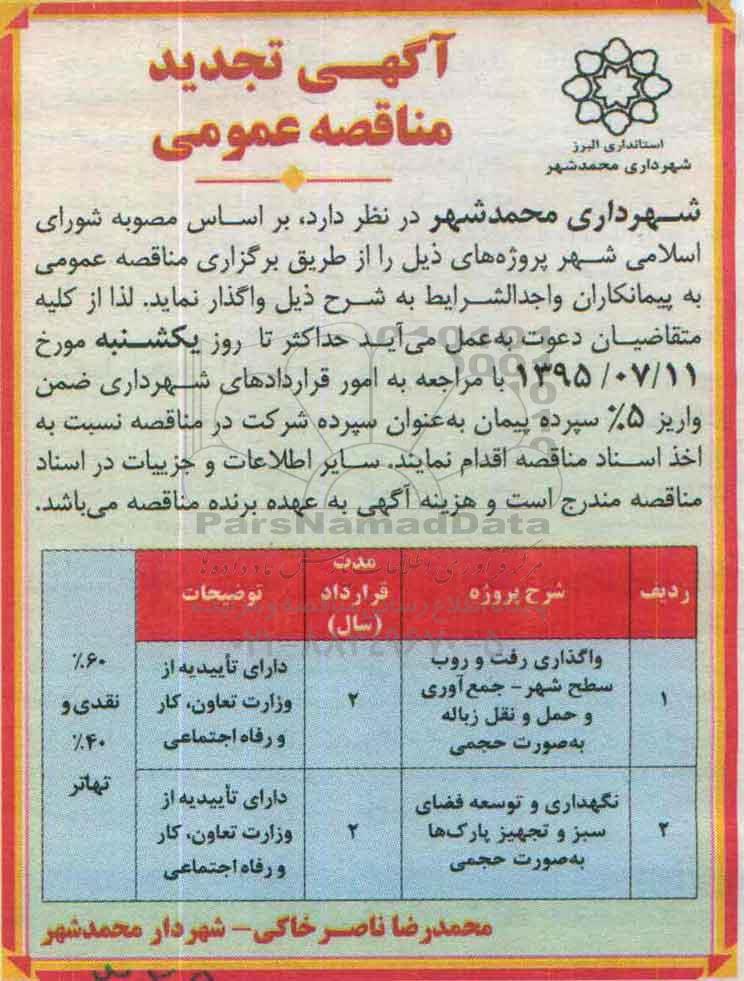 آگهی تجدید
مناقصه عمومی
استانداری البرز
شهرداری محمدشهر
شهرداری محمدشهر در نظر دارد، بر اساس مصوبه شورای
اسلامی شهر پروژه‌های ذیل را از طریق برگزاری مناقصه عمومی
به پیمانکاران واجدالشرایط به شرح ذیل واگذار نماید. لذا از کلیه
متقاضیان دعوت به‌عمل می‌آید حداکثر تا روز یکشنبه مورخ
۱۳۹۵/۰۷/۱۱ با مراجعه به امور قراردادهای شهرداری ضمن
واریز ۵٪ سپرده پیمان به‌عنوان سپرده شرکت در مناقصه نسبت به
اخذ اسناد مناقصه اقدام نمایند. سایر اطلاعات و جزییات در اسناد
مناقصه مندرج است و هزینه آگهی به عهده برنده مناقصه می‌باشد.
ParsNamadData
ردیف
شرح پروژه
مدت
قرارداد
(سال)
توضیحات
۱
واگذاری رفت و روب
سطح شهر - جمع‌آوری
و حمل و نقل زباله
به‌صورت حجمی
۲
دارای تأییدیه از
وزارت تعاون، کار
و رفاه اجتماعی
۶۰٪
نقدی و
۴۰٪
تهاتر
۲
نگهداری و توسعه فضای
سبز و تجهیز پارک‌ها
به‌صورت حجمی
۲
دارای تأییدیه از
وزارت تعاون، کار
و رفاه اجتماعی
محمدرضا ناصرخاکی - شهردار محمدشهر